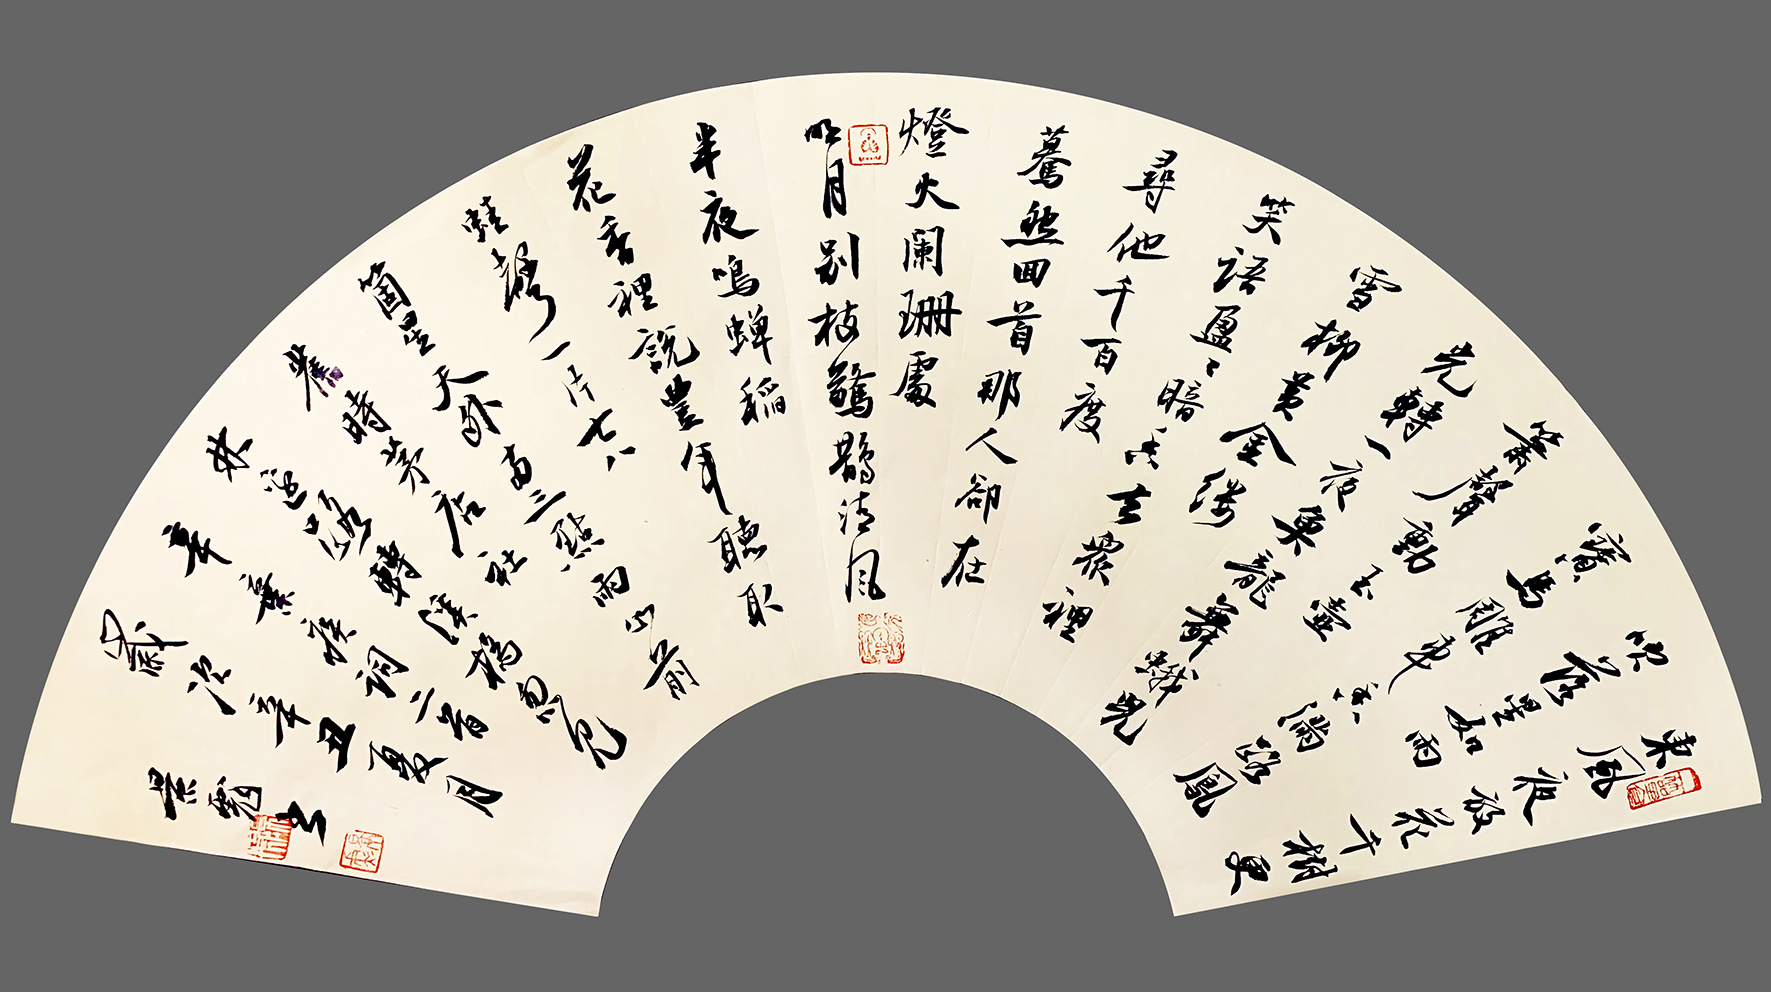 東風夜放花千樹更
吹落星如雨
寶馬雕車香滿路鳳
簫聲動玉壺
光轉一夜魚龍舞蛾兒
雪柳黃金縷
笑語盈〻暗香去衆裡
尋他千百度
驀然回首那人卻在
燈火闌珊處
明月别枝驚鵲清風
半夜鳴蟬稻
花香裡說豐年聽取
蛙聲一片七八
箇星天外兩三點雨山前
舊時茅店社
林邊路轉溪橋忽見
辛棄疾詞二首
歲次辛丑夏月
景書